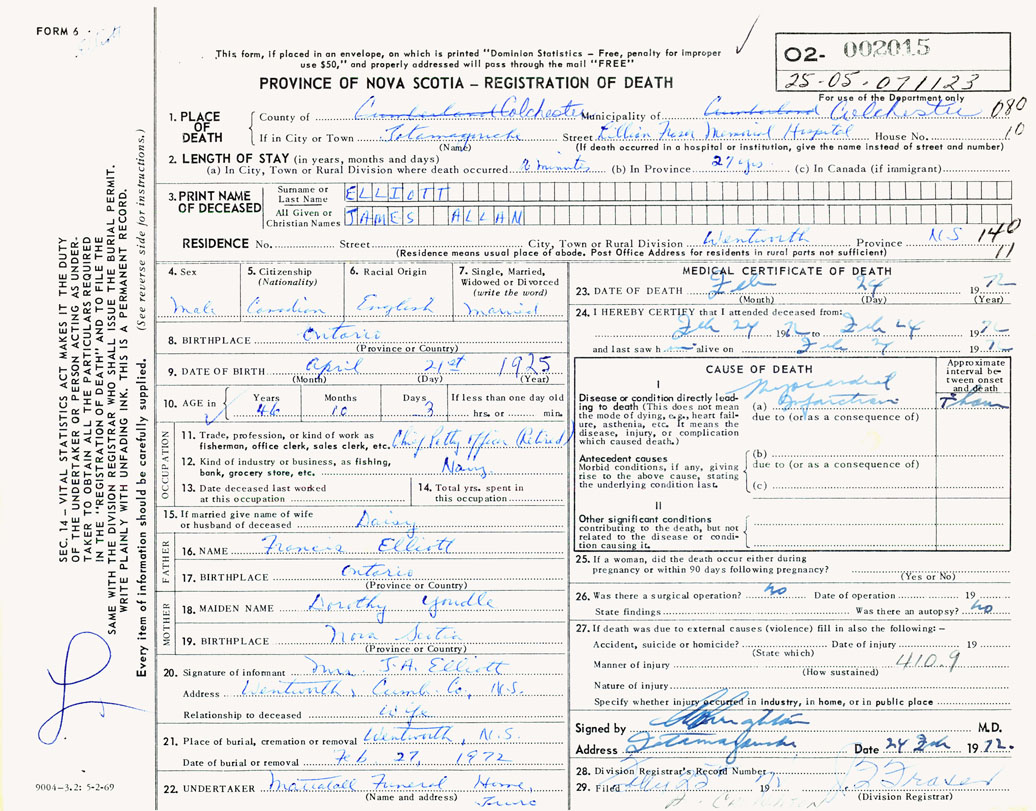 FORM 6
This form, if placed in an envelope, on which is printed "Dominion Statistics – Free, penalty for improper
use $50," and properly addressed will pass through the mail "FREE"
PROVINCE OF NOVA SCOTIA – REGISTRATION OF DEATH
O2- 002015
25-05-071123
For use of the Department only
080
10
SEC. 14 – VITAL STATISTICS ACT MAKES IT THE DUTY
OF THE UNDERTAKER OR PERSON ACTING AS UNDER-
TAKER TO OBTAIN ALL THE PARTICULARS REQUIRED
IN THE "REGISTRATION OF DEATH" AND TO FILE THE
SAME WITH THE DIVISION REGISTRAR WHO SHALL ISSUE THE BURIAL PERMIT.
WRITE PLAINLY WITH UNFADING INK. THIS IS A PERMANENT RECORD.
Every item of information should be carefully supplied. (See reverse side for instructions.)
1. PLACE OF DEATH
County of Cumberland Colchester Municipality of Cumberland Colchester
If in City or Town Tatamagouche Street Lillian Fraser Memorial Hospital House No.
(Name) (If death occurred in a hospital or institution, give the name instead of street and number)
2. LENGTH OF STAY (in years, months and days)
(a) In City, Town or Rural Division where death occurred minutes (b) In Province 27 yrs. (c) In Canada (if immigrant)
3. PRINT NAME OF DECEASED
Surname or Last Name ELLIOTT
All Given or Christian Names JAMES ALLAN
RESIDENCE No. Street City, Town or Rural Division Wentworth Province N.S 140
11
(Residence means usual place of abode. Post Office Address for residents in rural parts not sufficient)
4. Sex
Male
5. Citizenship
(Nationality)
Canadian
6. Racial Origin
English
7. Single, Married,
Widowed or Divorced
(write the word)
Married
8. BIRTHPLACE Ontario
(Province or Country)
9. DATE OF BIRTH April 21st 1925
(Month) (Day) (Year)
10. AGE in Years Months Days If less than one day old
46 10 3 hrs. or min.
OCCUPATION
11. Trade, profession, or kind of work as
fisherman, office clerk, sales clerk, etc. Chief Petty Officer (Retired)
12. Kind of industry or business, as fishing,
bank, grocery store, etc. Navy
13. Date deceased last worked
at this occupation
14. Total yrs. spent in
this occupation
15. If married give name of wife
or husband of deceased Daisy
FATHER
16. NAME Francis Elliott
17. BIRTHPLACE Ontario
(Province or Country)
MOTHER
18. MAIDEN NAME Dorothy
19. BIRTHPLACE Nova Scotia
(Province or Country)
20. Signature of informant Mrs. J.A. Elliott
Address Wentworth, Cumb. Co, N.S.
Relationship to deceased Wife
21. Place of burial, cremation or removal Wentworth, N.S.
Date of burial or removal Feb 27, 1972
22. UNDERTAKER Mattatall Funeral Home,
(Name and address) Truro
9004-3.2: 5-2-69
MEDICAL CERTIFICATE OF DEATH
23. DATE OF DEATH Feb 24 1972
(Month) (Day) (Year)
24. I HEREBY CERTIFY that I attended deceased from:
Feb 24 1972 to Feb 24 1972
and last saw h alive on Feb 24 19
CAUSE OF DEATH
Approximate
interval be-
tween onset
and death
I
Disease or condition directly lead-
ing to death (This does not mean
the mode of dying, e.g., heart fail-
ure, asthenia, etc. It means the
disease, injury, or complication
which caused death.)
(a) Myocardial Infarction
due to (or as a consequence of)
Antecedent causes
Morbid conditions, if any, giving
rise to the above cause, stating
the underlying condition last.
(b)
due to (or as a consequence of)
(c)
II
Other significant conditions
contributing to the death, but not
related to the disease or condi-
tion causing it.
25. If a woman, did the death occur either during
pregnancy or within 90 days following pregnancy?
(Yes or No)
26. Was there a surgical operation? no Date of operation 19
State findings Was there an autopsy? no
27. If death was due to external causes (violence) fill in also the following: –
Accident, suicide or homicide? Date of injury 19
(State which)
Manner of injury 410.9
(How sustained)
Nature of injury
Specify whether injury occurred in industry, in home, or in public place
Signed by M.D.
Address Tatamagouche Date 24 Feb 1972.
28. Division Registrar's Record Number
29. Filed 19 Fraser
(Division Registrar)